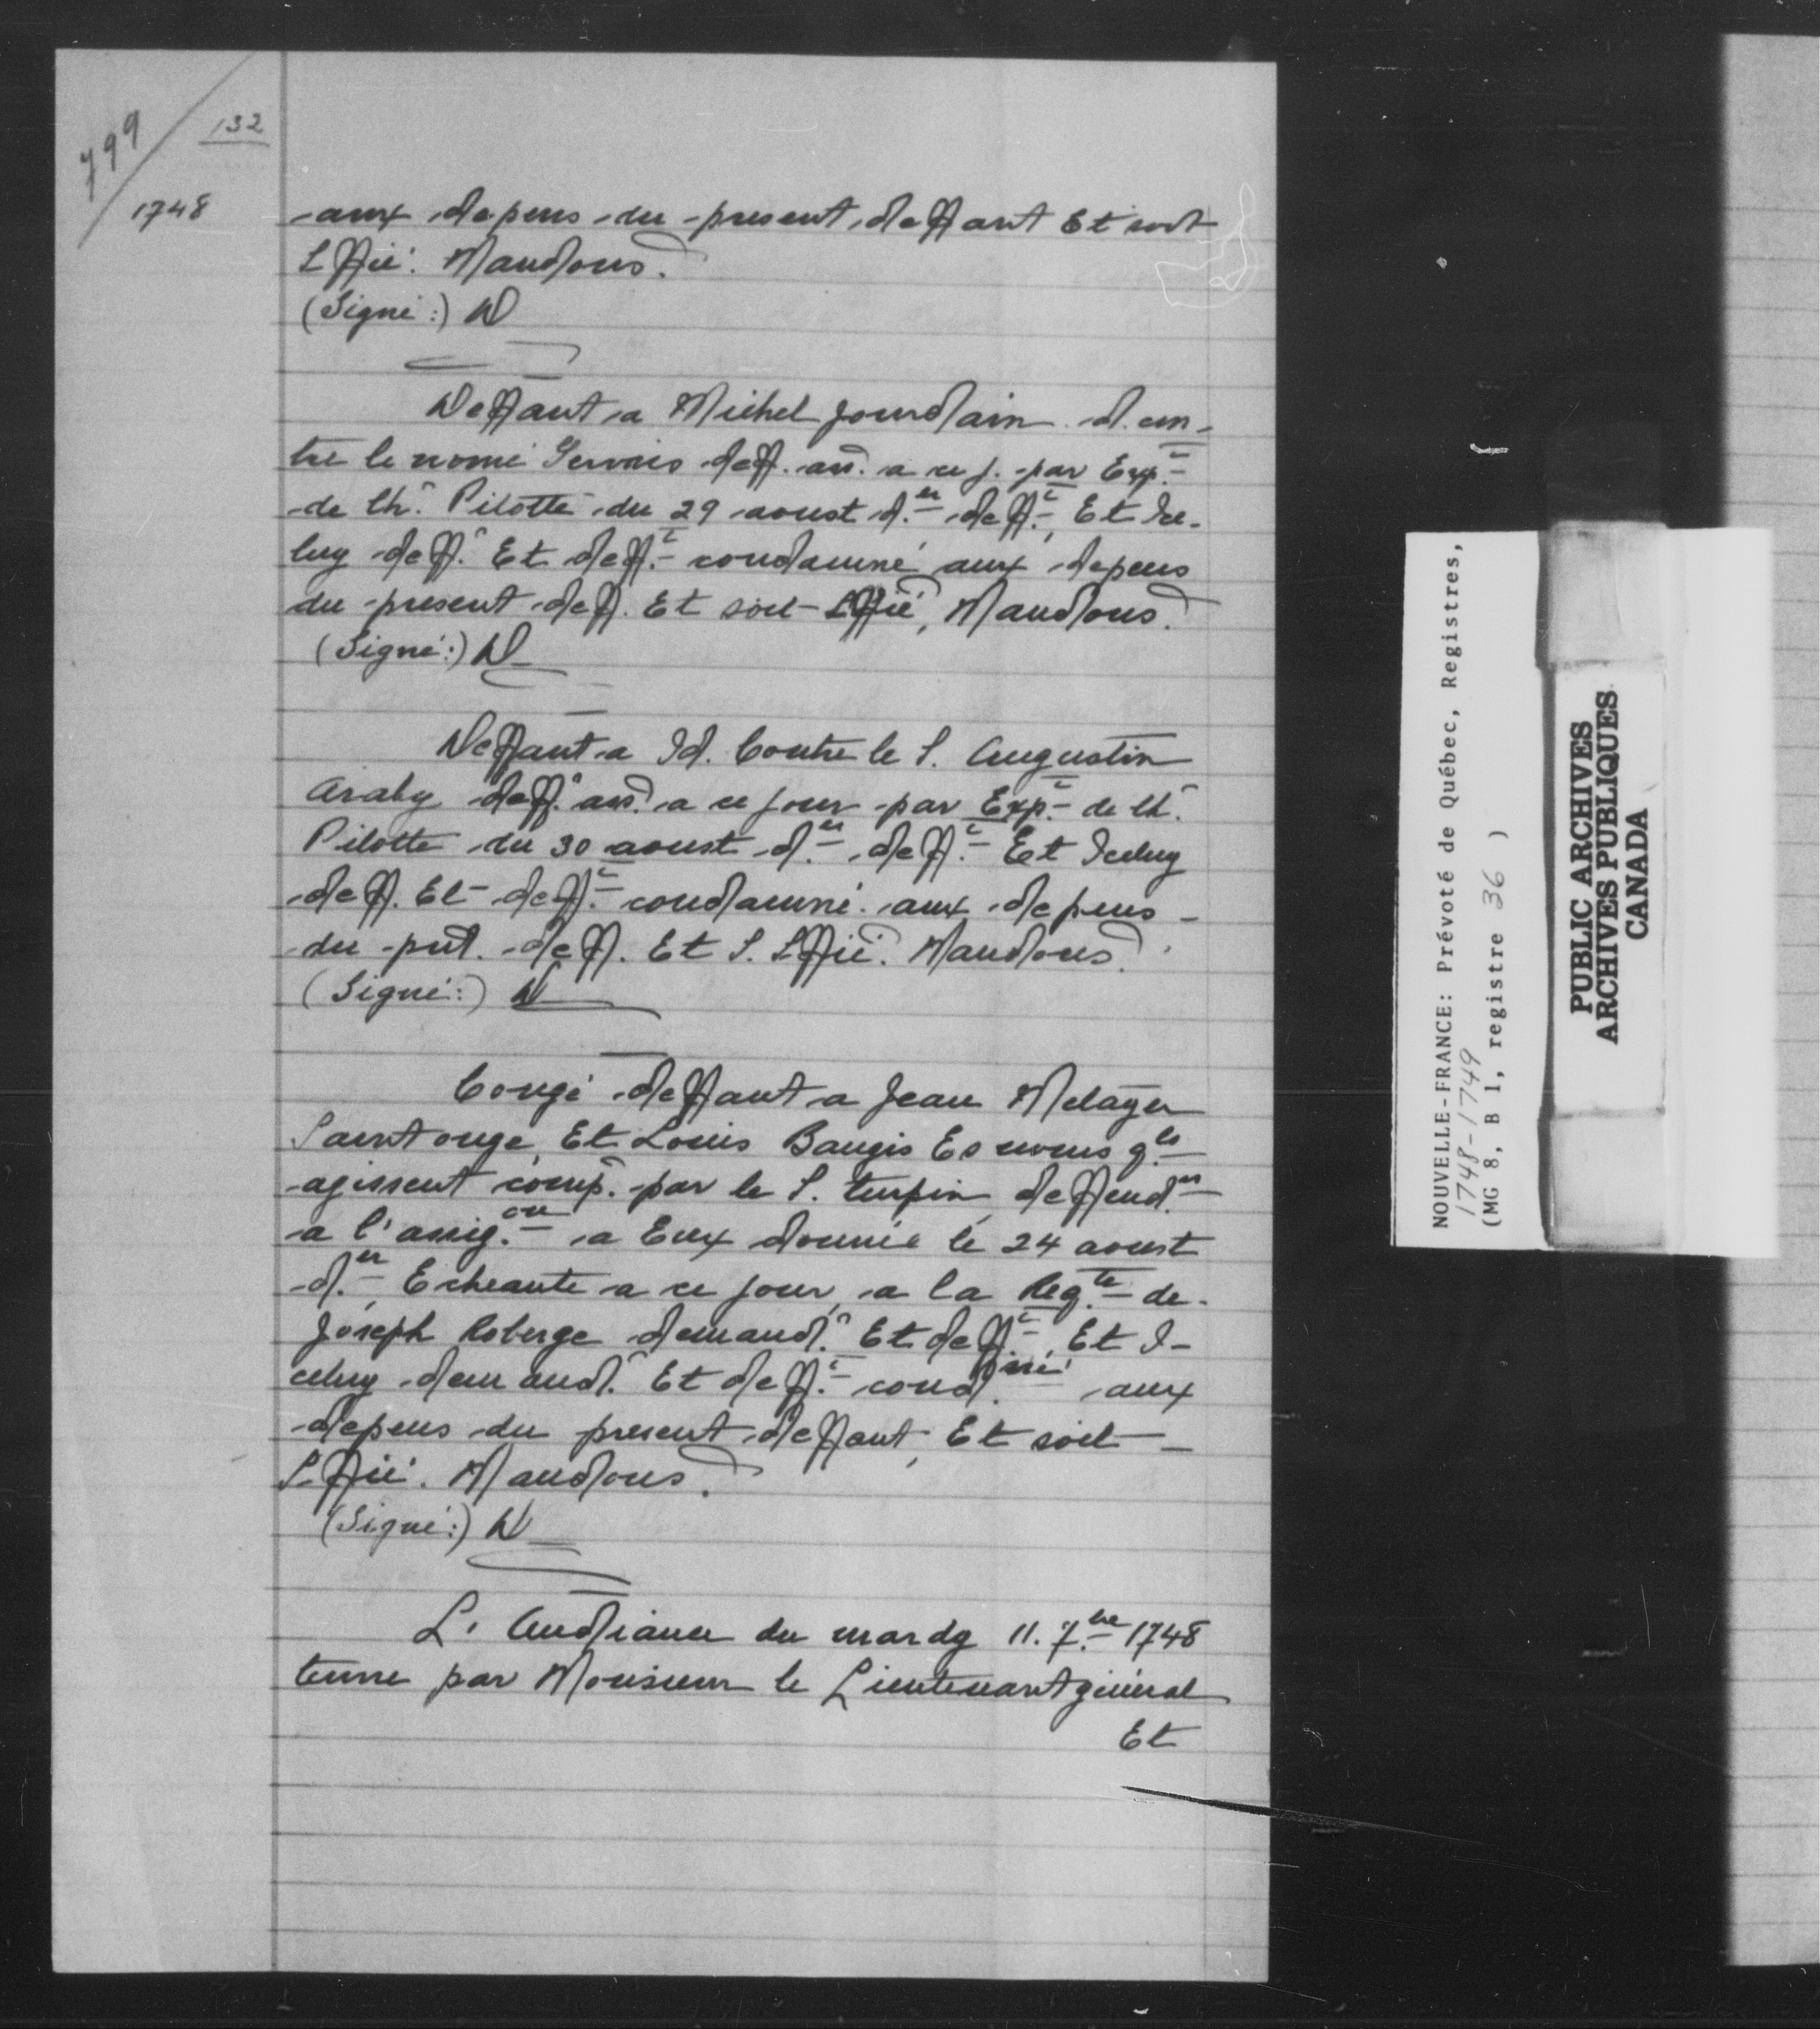 799
132
1748
aux depens du present deffaut Et soit
Sffié. Mandons.
(Signé:) D
Deffaut a Michel Jourdain d. con-
tre le nomé Gervais deff. ass. a ce j. par Exp.t
de Ch.r Pilotte du 29 aoust d.er deff.t, Et Ice-
luy deff.r Et deff.t condamné aux depens
du present deff. Et soit Sffié, Mandons.
(Signé:) D
Deffaut a Id. Contre le S. Augustin
Araby deff.r ass. a ce jour par Exp.t de Ch.r
Pilotte du 30 aoust d.er deff.t Et Iceluy
deff. Et deff.t condamné aux depens
du pnt. deff. Et S. Sffié. Mandons.
(Signé:) D
Congé deffaut a Jean Metayer
Saintonge, Et Louis Baugis Es noms q.ls
agissent comp. par le S. turpin deffend.rs
a l'assig.on a Eux donnée le 24 aoust
d.er Echeante a ce jour, a la Reg.te de
Joseph Roberge demand.r Et deff.t, Et I-
celuy demand.r Et deff.t cond.mné aux
depens du present deffaut, Et soit
Sffié. Mandons.
(Signé:) D
L'Audiance du mardy 11. 7.bre 1748
tenue par Monsieur le Lieutenant général
Et
NOUVELLE-FRANCE: Prévoté de Québec, Registres,
1748-1749
(MG 8, B 1, registre 36 )
PUBLIC ARCHIVES
ARCHIVES PUBLIQUES
CANADA